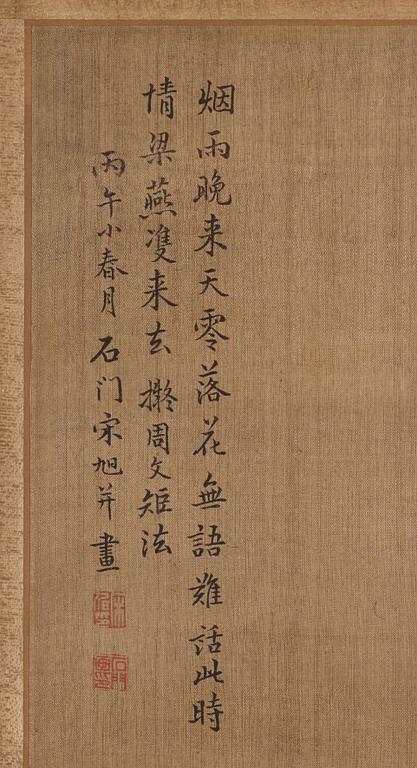 烟雨晚来天零落花無語難話此時
情梁燕雙来去 擬周文矩法
丙午小春月 石门宋旭并畫
石門